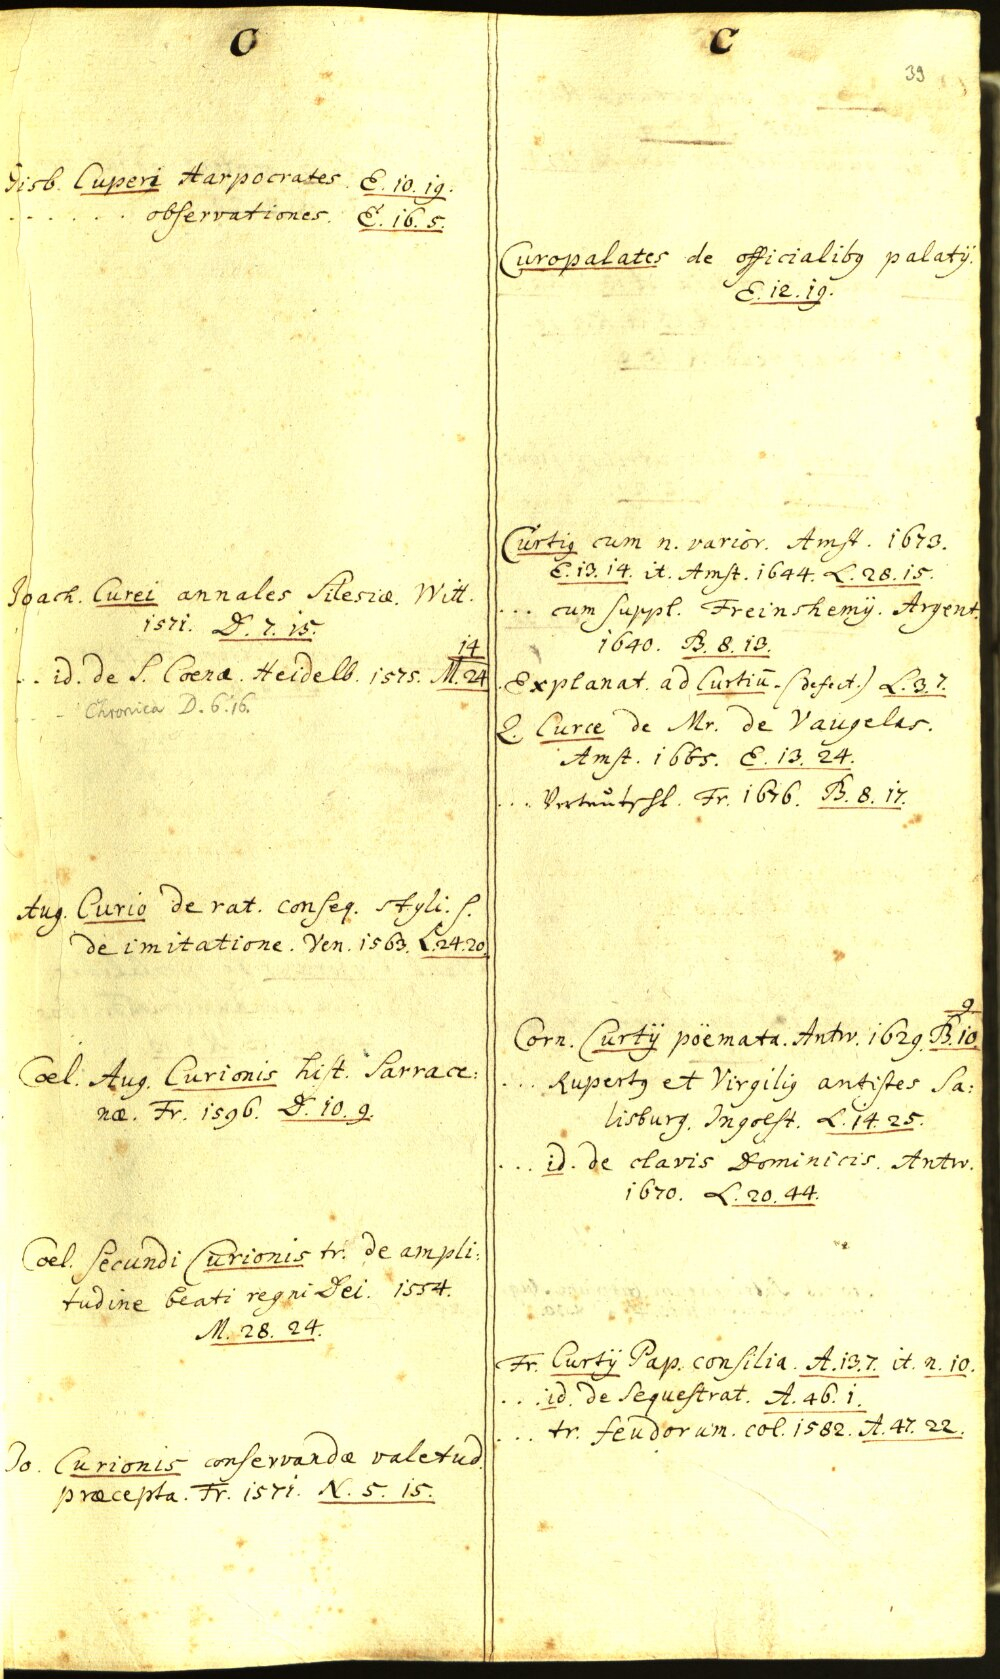 C
Gisb. Cuperi Harpocrates. E. 10. 19.
. . . . . . observationes. E. 16. 5.
Joach. Curei annales Silesiæ. Witt.
1571. D. 7. 15.
. . id. de S. Coena. Heidelb. 1575. M. 24
14
Chronica D. 6. 16.
Aug. Curio de rat. conseq. styli. s.
de imitatione. Ven. 1563. L. 24. 20.
Coel. Aug. Curionis hist. Sarrace:
næ. Fr. 1596. D. 10. 9.
Coel. Secundi Curionis tr. de ampli:
tudine beati regni Dei. 1554.
M. 28. 24.
Jo. Curionis conservandæ valetud.
præcepta. Fr. 1571. N. 5. 15.
C
39
Curopalates de officialibq palatÿ.
E. 12. 19.
Curtiq cum n. varior. Amst. 1673.
E. 13. 14. it. Amst. 1644. L. 28. 15.
. . . cum suppl. Freinshemÿ. Argent.
1640. B. 8. 13.
Explanat. ad Curtiū. (defect.) L. 3. 7.
Q. Curce de Mr. de Vaugelas.
Amst. 1665. E. 13. 24.
. . . Verteutschl. Fr. 1676. B. 8. 17.
9
Corn. Curtÿ poëmata. Antw. 1629. B. 10
. . . Rupertq et Virgiliq antistes Sa:
lisburg. Ingolst. L. 14. 25.
. . . id. de clavis Dominicis. Antw.
1670. L. 20. 44.
Fr. Curtÿ Pap. consilia. A. 13. 7. it. n. 10.
. . . id. de sequestrat. A. 46. 1.
. . . tr. feudorum. col. 1582. A. 47. 22.